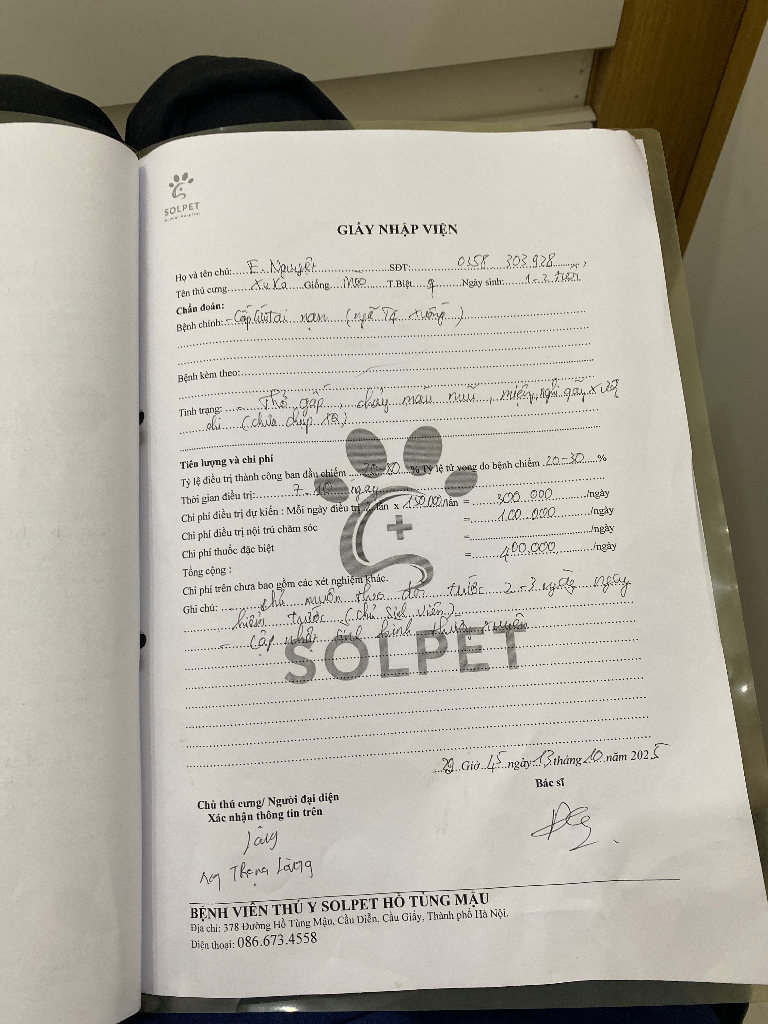 SOLPET
GIẤY NHẬP VIỆN
Họ và tên chủ: E. Nguyệt SĐT: 0358 303.928
Tên thú cưng XuKa Giống mèo T.Biệt ♀ Ngày sinh: 1-2 tuổi
Chẩn đoán:
Bệnh chính: - Cấp cứu tai nạn (ngã từ xuống)
Bệnh kèm theo:
Tình trạng: - Thở gấp, chảy máu mũi, miệng, nghi gãy xương
(chưa chụp XQ)
Tiên lượng và chi phí
Tỷ lệ điều trị thành công ban đầu chiếm % Tỷ lệ tử vong do bệnh chiếm 20-30 %
Thời gian điều trị: 7-10 ngày
Chi phí điều trị dự kiến : Mỗi ngày điều trị 2 lần x 150.000/lần = 300.000 /ngày
Chi phí điều trị nội trú chăm sóc = 100.000 /ngày
Chi phí thuốc đặc biệt = /ngày
Tổng cộng : = 400.000 /ngày
Chi phí trên chưa bao gồm các xét nghiệm khác.
Ghi chú: - chủ muốn theo dõi trước 2-3 ngày
trước (chủ sinh viên)
- Cập nhật tình hình thường xuyên
SOLPET
Giờ 45 ngày 13 tháng 10 năm 2025
Chủ thú cưng/ Người đại diện
Xác nhận thông tin trên
Bác sĩ
BỆNH VIỆN THÚ Y SOLPET HỒ TÙNG MẬU
Địa chỉ: 378 Đường Hồ Tùng Mậu, Cầu Diễn, Cầu Giấy, Thành phố Hà Nội.
Điện thoại: 086.673.4558